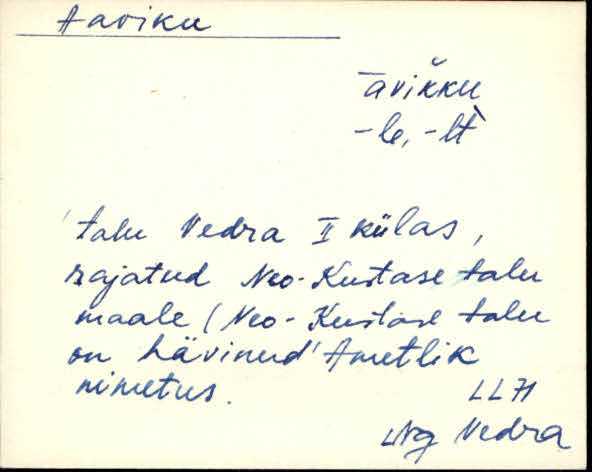 Aaviku
āvikku
-le, -lt
'talu Vedra II külas,
rajatud Neo-Kustase talu
maale (Neo-Kustase talu
on hävinud' Ametlik
nimetus.
LL 71
Ng Vedra